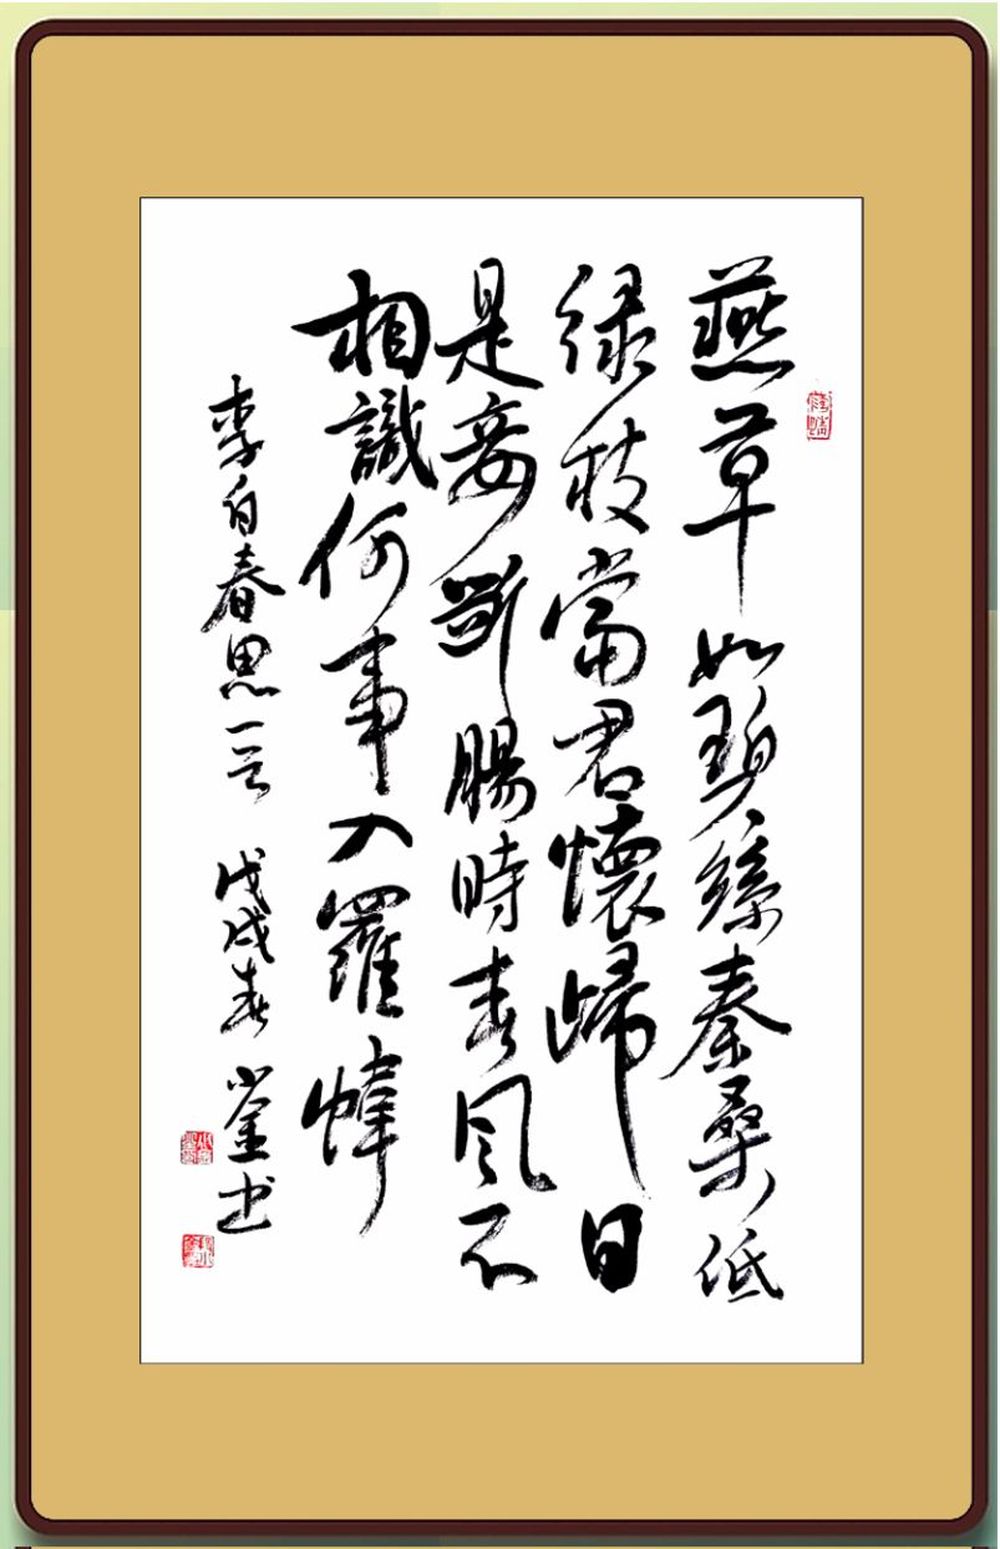 燕草如碧絲秦桑低
绿枝當君懷歸日
是妾斷腸時春風不
相識何事入羅幃
李白春思一首 戊戌春 小金书